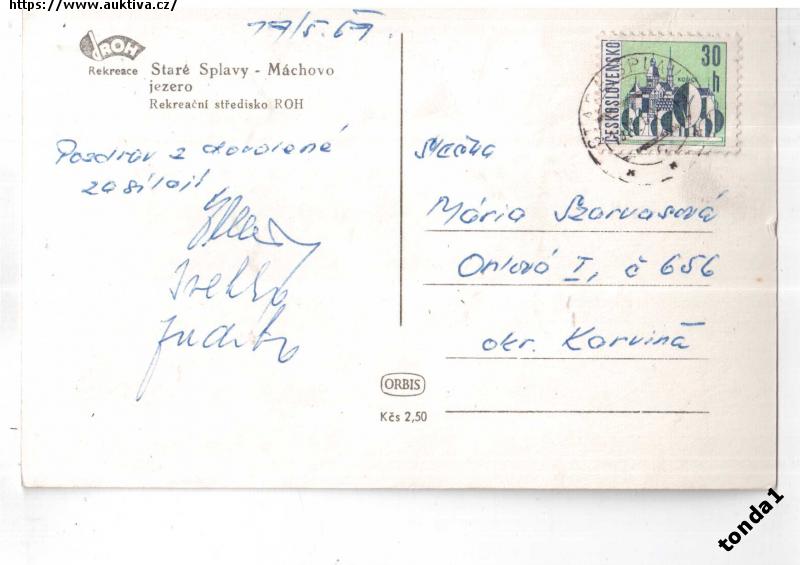 https://www.auktiva.cz/
17/5.67.
ROH
Rekreace Staré Splavy - Máchovo
jezero
Rekreační středisko ROH
Pozdrav z dovolené
zasílají
Judita
ČESKOSLOVENSKO
30
h
STARÉ SPLAVY
slečna
Mária Szarvasová
Orlová I, č 656
okr. Karviná
ORBIS
Kčs 2,50
tonda1